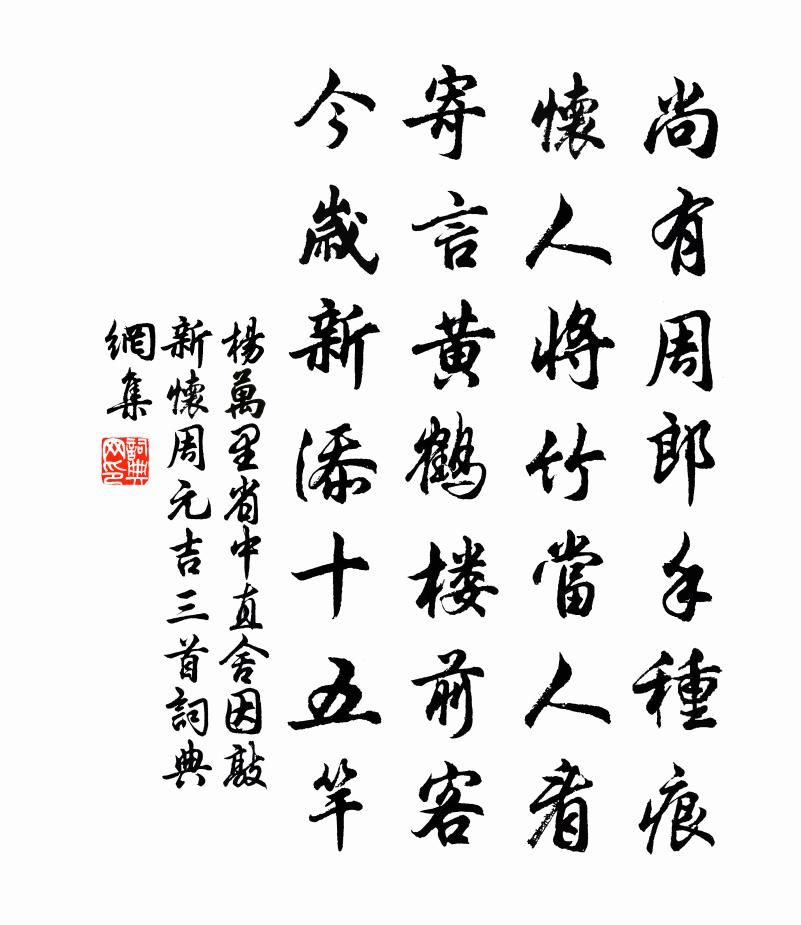 尚有周郎手種痕
懷人將竹當人看
寄言黃鶴樓前客
今歲新添十五竿
楊萬里省中直舍因敲
新懷周元吉三首詞典
網集
詞典
网印